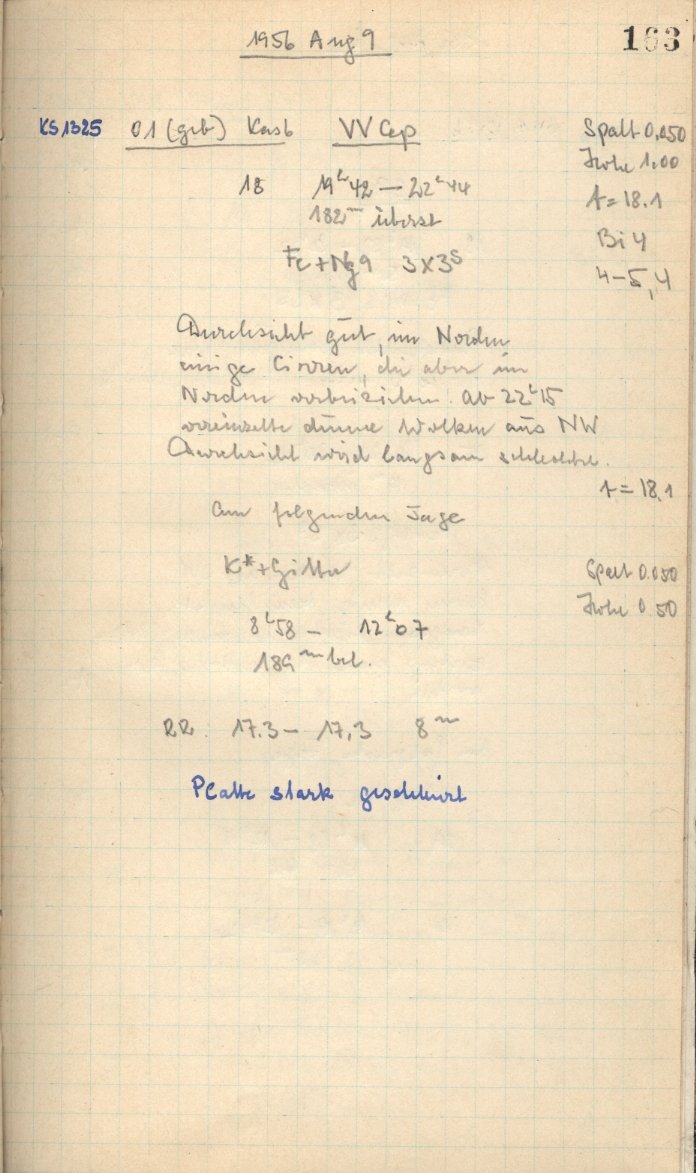 1956 Aug 9
163
KS 1325 01 (geb) Kasb VV Cep
Spalt 0,050
Höhe 1.00
18 19ʰ42 — 22ʰ44
t = 18.1
182ᵐ überst
Bi 4
Fe + Ng 9 3x3ˢ
4–5,4
Durchsicht gut, im Norden
einige Cirren, die aber im
Norden vorbeiziehen. ab 22ʰ15
vereinzelte dünne Wolken aus NW
Durchsicht wird langsam schlechter.
t = 18,1
am folgenden Tage
K* + Gitter
Spalt 0.050
Höhe 0.50
8ʰ58 — 12ʰ07
189ᵐ bel.
RR. 17.3 — 17,3 8ᵐ
Platte stark geschleiert